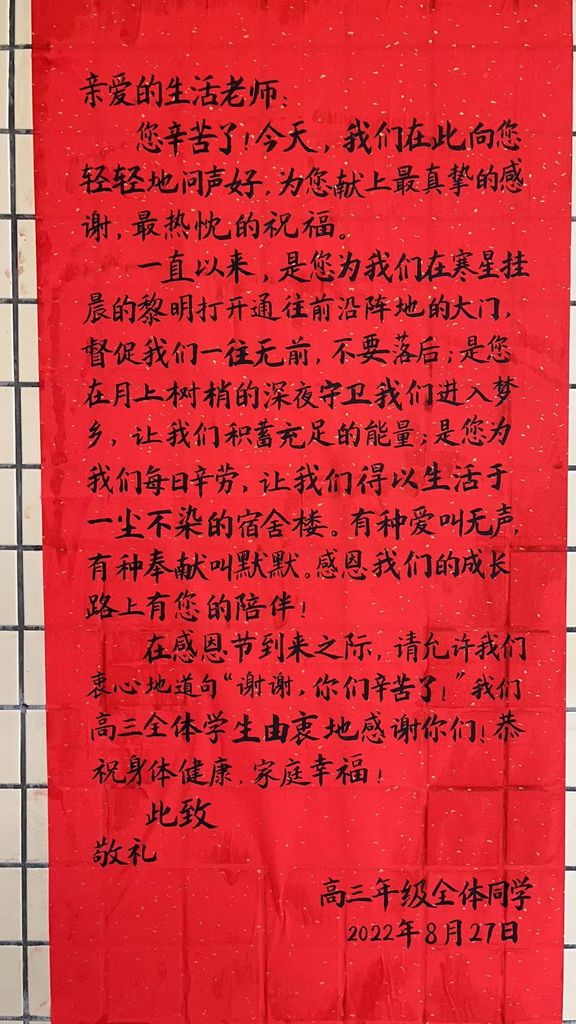 亲爱的生活老师：
您辛苦了！今天，我们在此向您
轻轻地问声好，为您献上最真挚的感
谢，最热忱的祝福。
一直以来，是您为我们在寒星挂
晨的黎明打开通往前沿阵地的大门，
督促我们一往无前，不要落后；是您
在月上树梢的深夜守卫我们进入梦
乡，让我们积蓄充足的能量；是您为
我们每日辛劳，让我们得以生活于
一尘不染的宿舍楼。有种爱叫无声，
有种奉献叫默默。感恩我们的成长
路上有您的陪伴！
在感恩节到来之际，请允许我们
衷心地道句“谢谢，你们辛苦了！”我们
高三全体学生由衷地感谢你们！恭
祝身体健康，家庭幸福！
此致
敬礼
高三年级全体同学
2022年8月27日